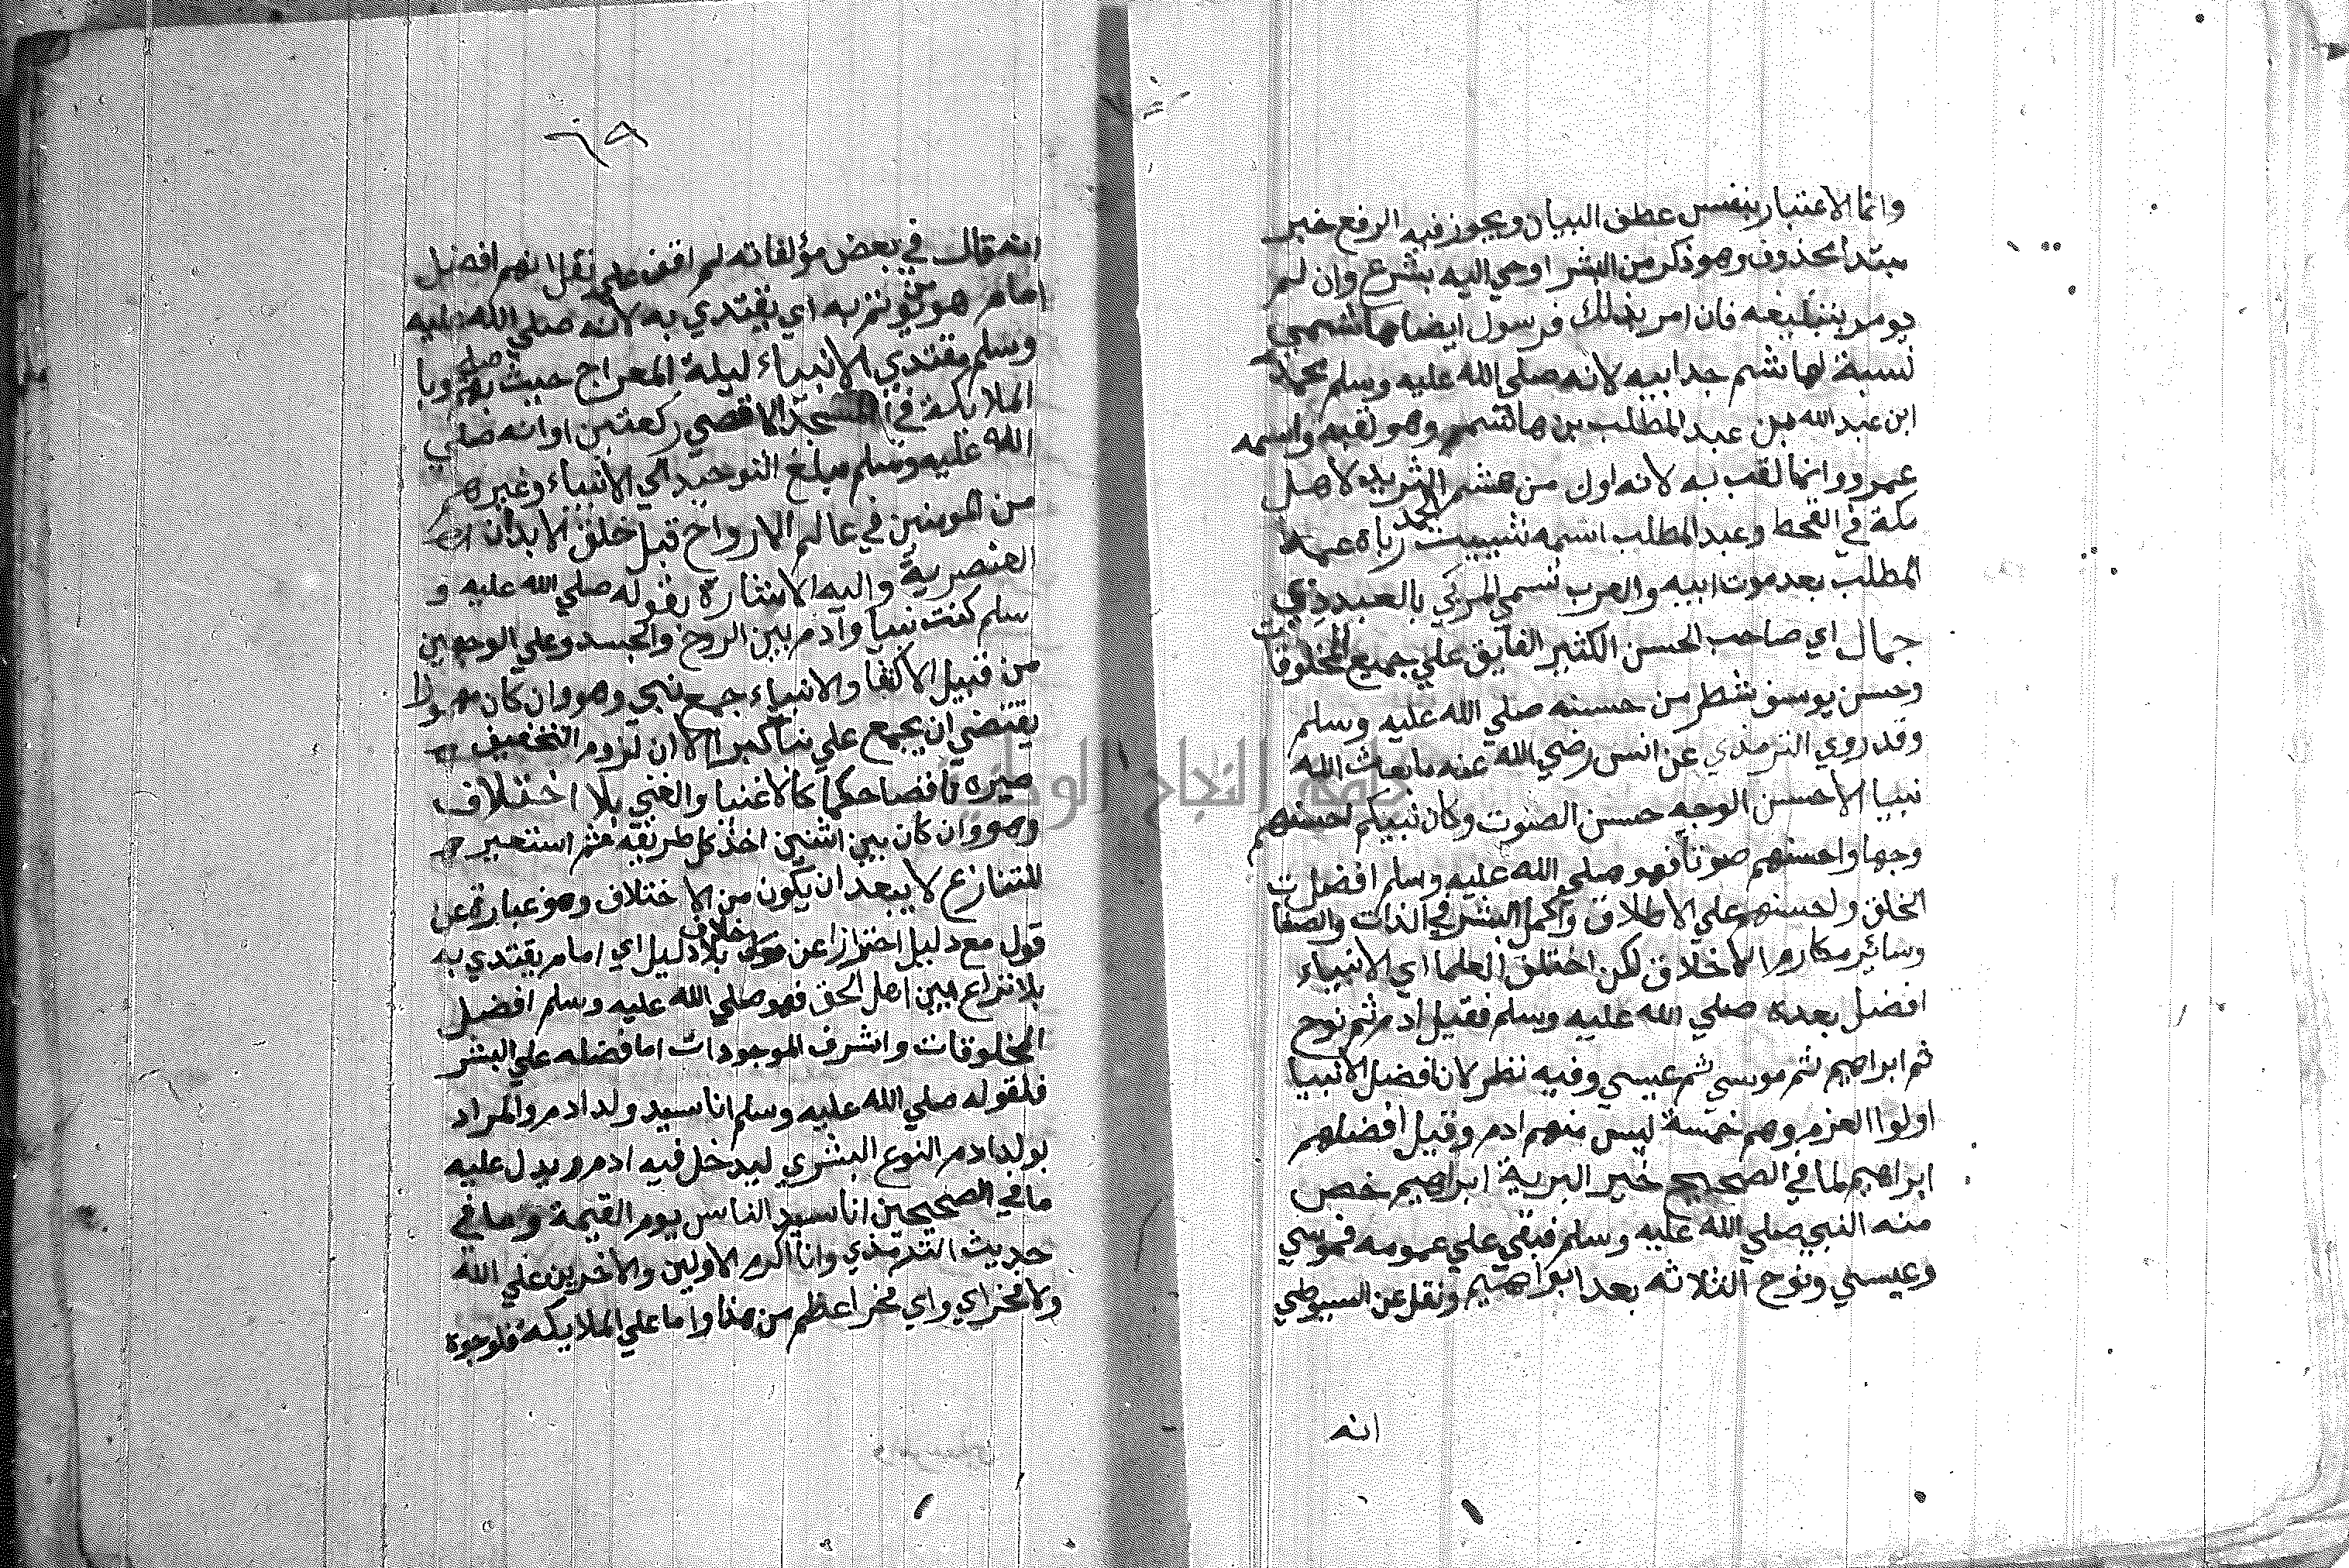 وانما الاعتبار بنفس عطف البيان ويجوز فيه الرفع خبر
مبتدا محذوف وهو ذكر من البشر اوحي اليه بشرع وان لم
يومر بتبليغه فان امر بذلك فرسول ايضا هاشمي
نسبة لهاشم جد ابيه لانه صلي الله عليه وسلم محمد
ابن عبد الله بن عبد المطلب بن هاشم وهو لقبه واسمه
عمرو وانما لقب به لانه اول من هشم الثريد لاهل
مكة في القحط وعبد المطلب اسمه شيبت الحمد رباه عمه
المطلب بعد موت ابيه والعرب تسمي المربي بالعبد ذي
جمال اي صاحب الحسن الكثير الفايق علي جميع المخلوقات
وحسن يوسف شطر من حسنه صلي الله عليه وسلم
وقد روي الترمذي عن انس رضي الله عنه ما بعث الله
نبيا الا حسن الوجه حسن الصوت وكان نبيكم احسنهم
وجها واحسنهم صوتا فهو صلي الله عليه وسلم افضل
الخلق واحسنهم علي الاطلاق واكمل البشر في الذات والصفات
وسائر مكارم الاخلاق لكن اختلف العلما اي الانبياء
افضل بعده صلي الله عليه وسلم فقيل ادم ثم نوح
ثم ابراهيم ثم موسي ثم عيسي وفيه نظر لان افضل الانبيا
اولوا العزم وهم خمسة ليس منهم ادم وقيل افضلهم
ابراهيم لما في الصحيح خير البرية ابراهيم خص
منه النبي صلي الله عليه وسلم فبقي علي عمومه فموسي
وعيسي ونوح الثلاثه بعد ابراهيم ونقل عن السيوطي
انه
٦٨
انه قال في بعض مؤلفاته لم اقف علي نقل انهم افضل
امام هو من يؤتم به اي يقتدي به لانه صلي الله عليه
وسلم مقتدي الانبياء ليلة المعراج حيث صلي بهم وبا
الملايكة في المسجد الاقصي ركعتين او انه صلي
الله عليه وسلم مبلغ التوحيد الي الانبياء وغيرهم
من المومنين في عالم الارواح قبل خلق الابدان
العنصرية واليه الاشارة بقوله صلي الله عليه و
سلم كنت نبيا وادم بين الروح والجسد وعلي الوجهين
من قبيل الاكتفا والانبياء جمع نبي وهو وان كان
يقتضي ان يجمع علي نبا الا ان لزوم التخفيف
صيره ناقصا حكما كالاغنيا والغني بلا اختلاف
وهو وان كان بين اثنين اخذ كل طريقه ثم استعير
للتنازع لا يبعد ان يكون من الاختلاف وهو عبارة عن
قول مع دليل احترازا عن خلاف بلا دليل اي امام يقتدي به
بلا نزاع بين اهل الحق فهو صلي الله عليه وسلم افضل
المخلوقات واشرف الموجودات اما فضله علي البشر
فلقوله صلي الله عليه وسلم انا سيد ولد ادم والمراد
بولد ادم النوع البشري ليدخل فيه ادم ويدل عليه
ما في الصحيحين انا سيد الناس يوم القيمة وما في
حديث الترمذي وانا اكرم الاولين والاخرين علي الله
ولا فخر اي واي فخر اعظم من هذا واما علي الملايكة فلوجوه